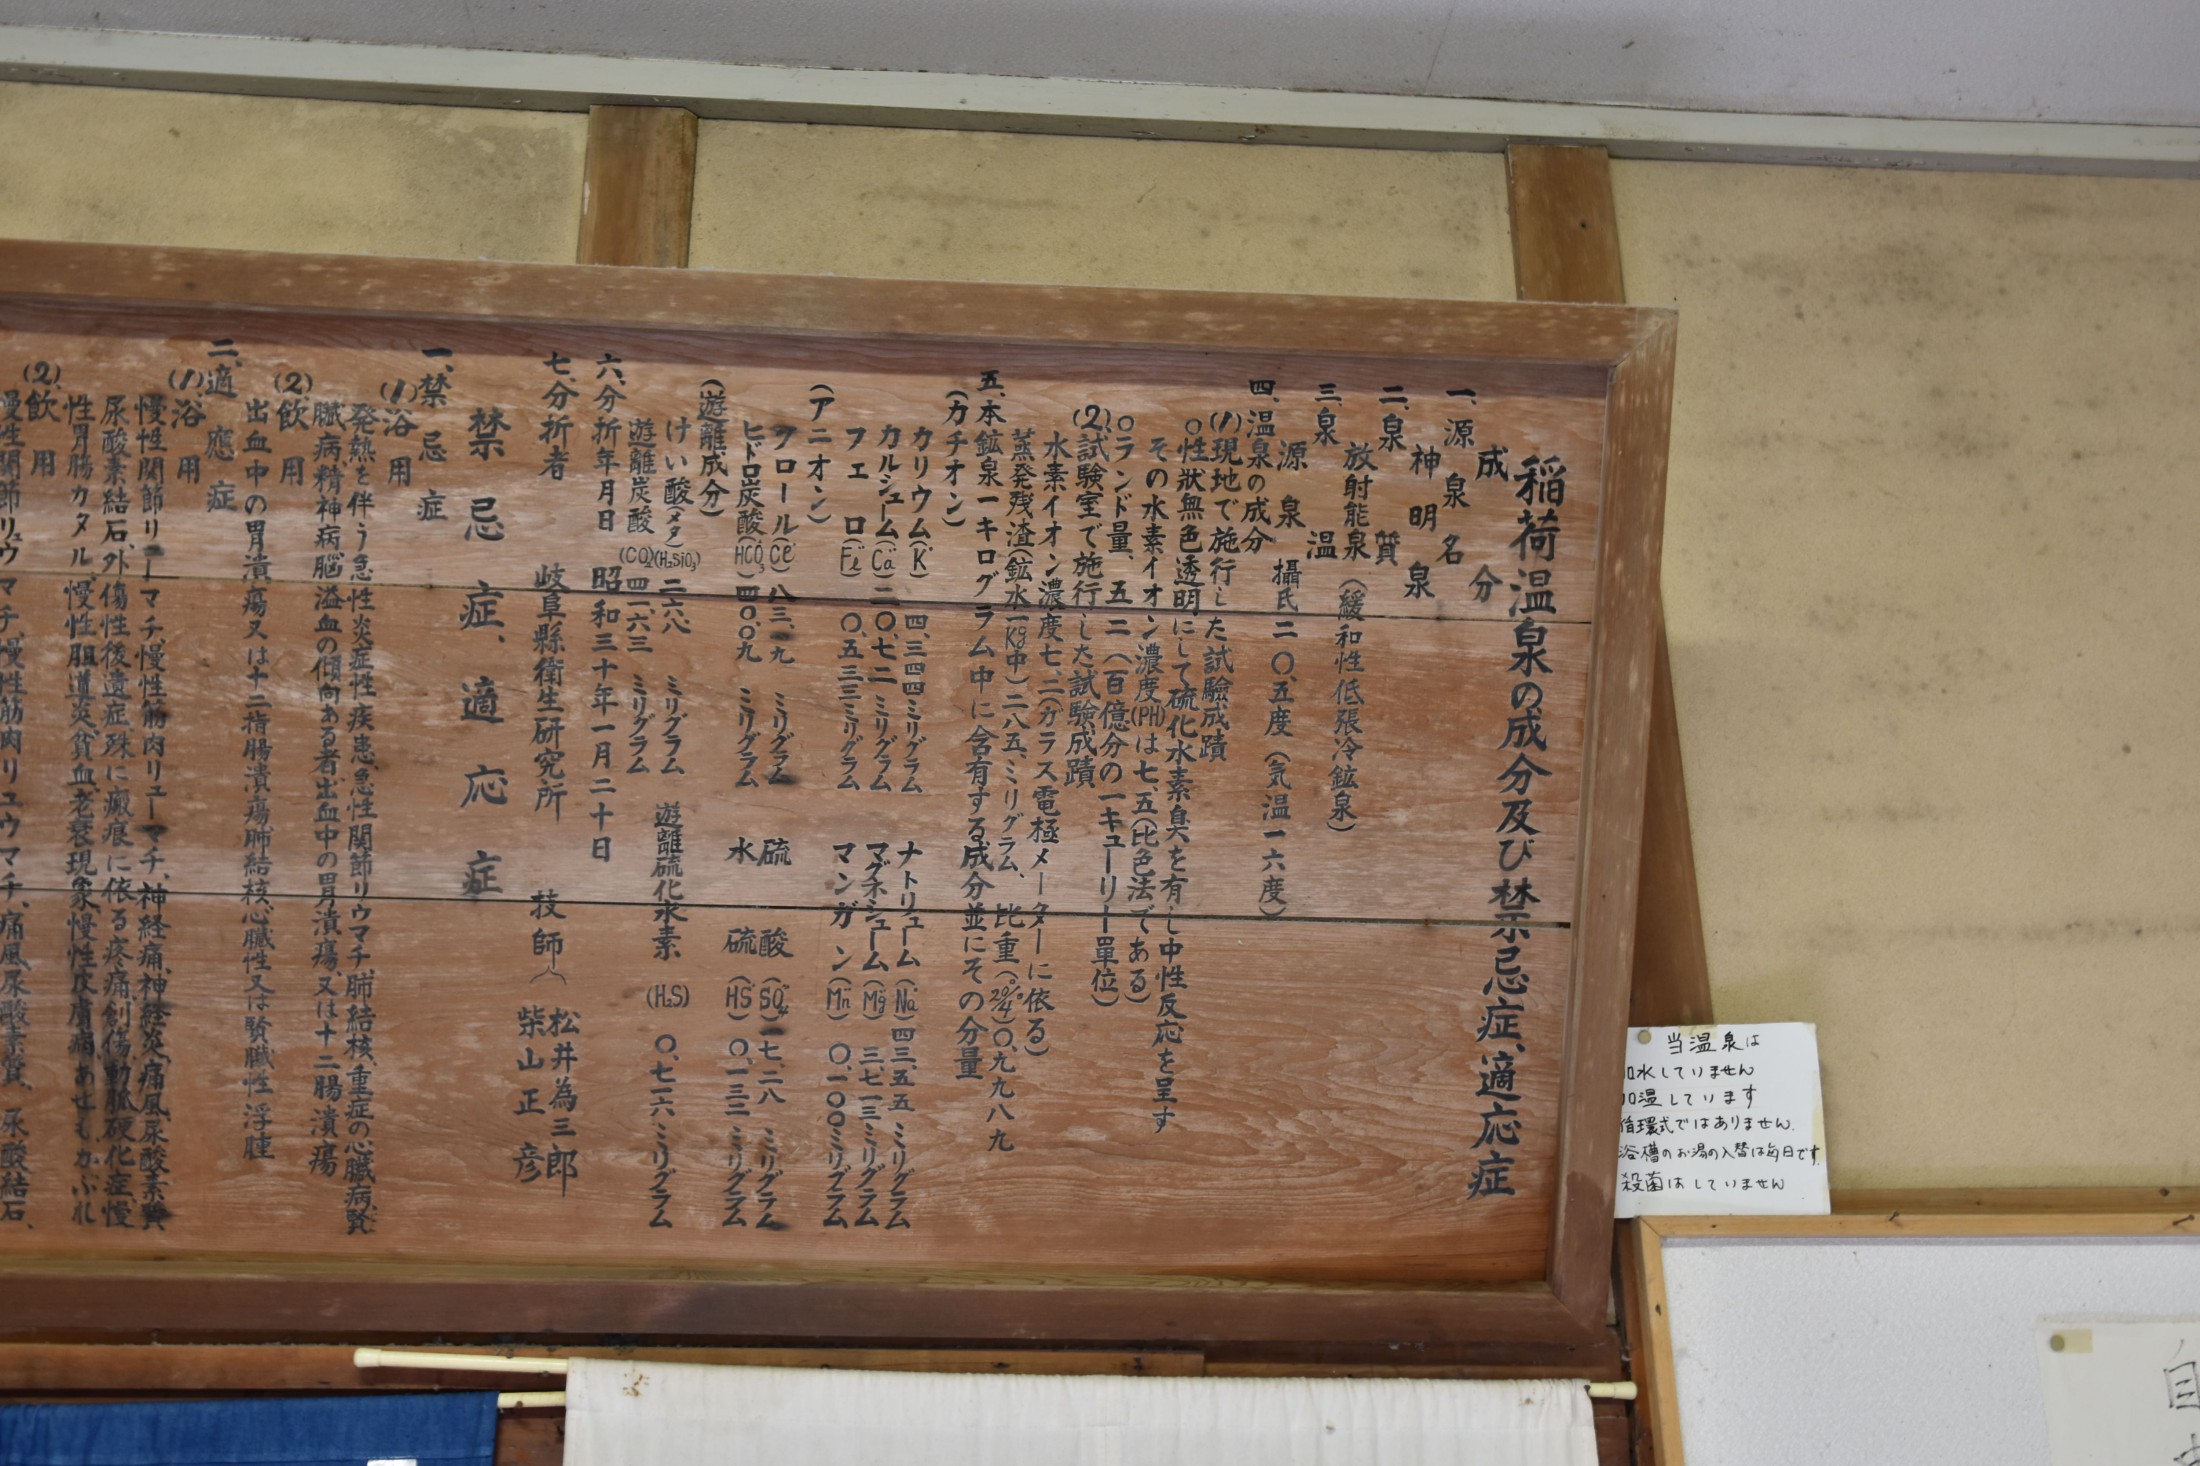 稲荷温泉の成分及び禁忌症、適応症
成分
一、源泉名
神明泉
二、泉質
放射能泉(緩和性低張冷鉱泉)
三、泉温
源泉 攝氏二〇、五度(気温一六度)
四、温泉の成分
(1)現地で施行した試驗成蹟
〇性狀無色透明にして硫化水素臭を有し中性反応を呈す
その水素イオン濃度(PH)は七、五(比色法である)
〇ランド量、五二(百億分の一キューリー單位)
(2)試験室で施行した試験成蹟
水素イオン濃度七、二(ガラス電極メーターに依る)
蒸発残渣(鉱水一Kg中)二八五、ミリグラム、比重(20°/4°)〇、九九八九
五、本鉱泉一キログラム中に含有する成分並にその分量
(カチオン)
カリウム(K˙)四、三四四ミリグラム ナトリューム(Na˙)四三、五五ミリグラム
カルシューム(Ca¨)二〇、七二ミリグラム マグネシューム(Mg¨)三、七一三ミリグラム
フェロ(Fe¨)〇、五三三ミリグラム マンガン(Mn¨)〇、一〇〇ミリグラム
(アニオン)
クロール(Cl′)八三、一九ミリグラム 硫酸(SO₄″)一七、二八ミリグラム
ヒドロ炭酸(HCO₃′)四〇、〇九ミリグラム 水硫(HS′)〇、一三二ミリグラム
(遊離成分)
けい酸(メタ)(H₂SiO₃)二六、八ミリグラム 遊離硫化水素(H₂S)〇、七一六ミリグラム
遊離炭酸(CO₂)四一、六三ミリグラム
六、分折年月日 昭和三十年一月二十日
七、分折者 岐阜縣衛生研究所 技師 松井為三郎
柴山正彦
禁忌症、適応症
一、禁忌症
(1)浴用
発熱を伴う急性炎症性疾患、急性関節リウマチ、肺結核、重症の心臓病、腎
臓病、精神病、脳溢血の傾向ある者、出血中の胃潰瘍、又は十二腸潰瘍
(2)飲用
出血中の胃潰瘍又は十二指腸潰瘍、肺結核、心臓性又は腎臓性浮腫
二、適應症
(1)浴用
慢性関節リューマチ、慢性筋肉リューマチ、神経痛、神経炎、痛風、尿酸素質
尿酸素結石、外傷性後遺症、殊に瘢痕に依る疼痛、創傷、動脈硬化症、慢
性胃腸カタル、慢性胆道炎、貧血、老衰現象、慢性皮膚病、あせも、かぶれ
(2)飲用
慢性関節リュウマチ、慢性筋肉リュウマチ、痛風、尿酸素質、尿酸結石、
当温泉は
加水していません
加温しています
循環式ではありません.
浴槽のお湯の入替は毎日です.
殺菌はしていません
自